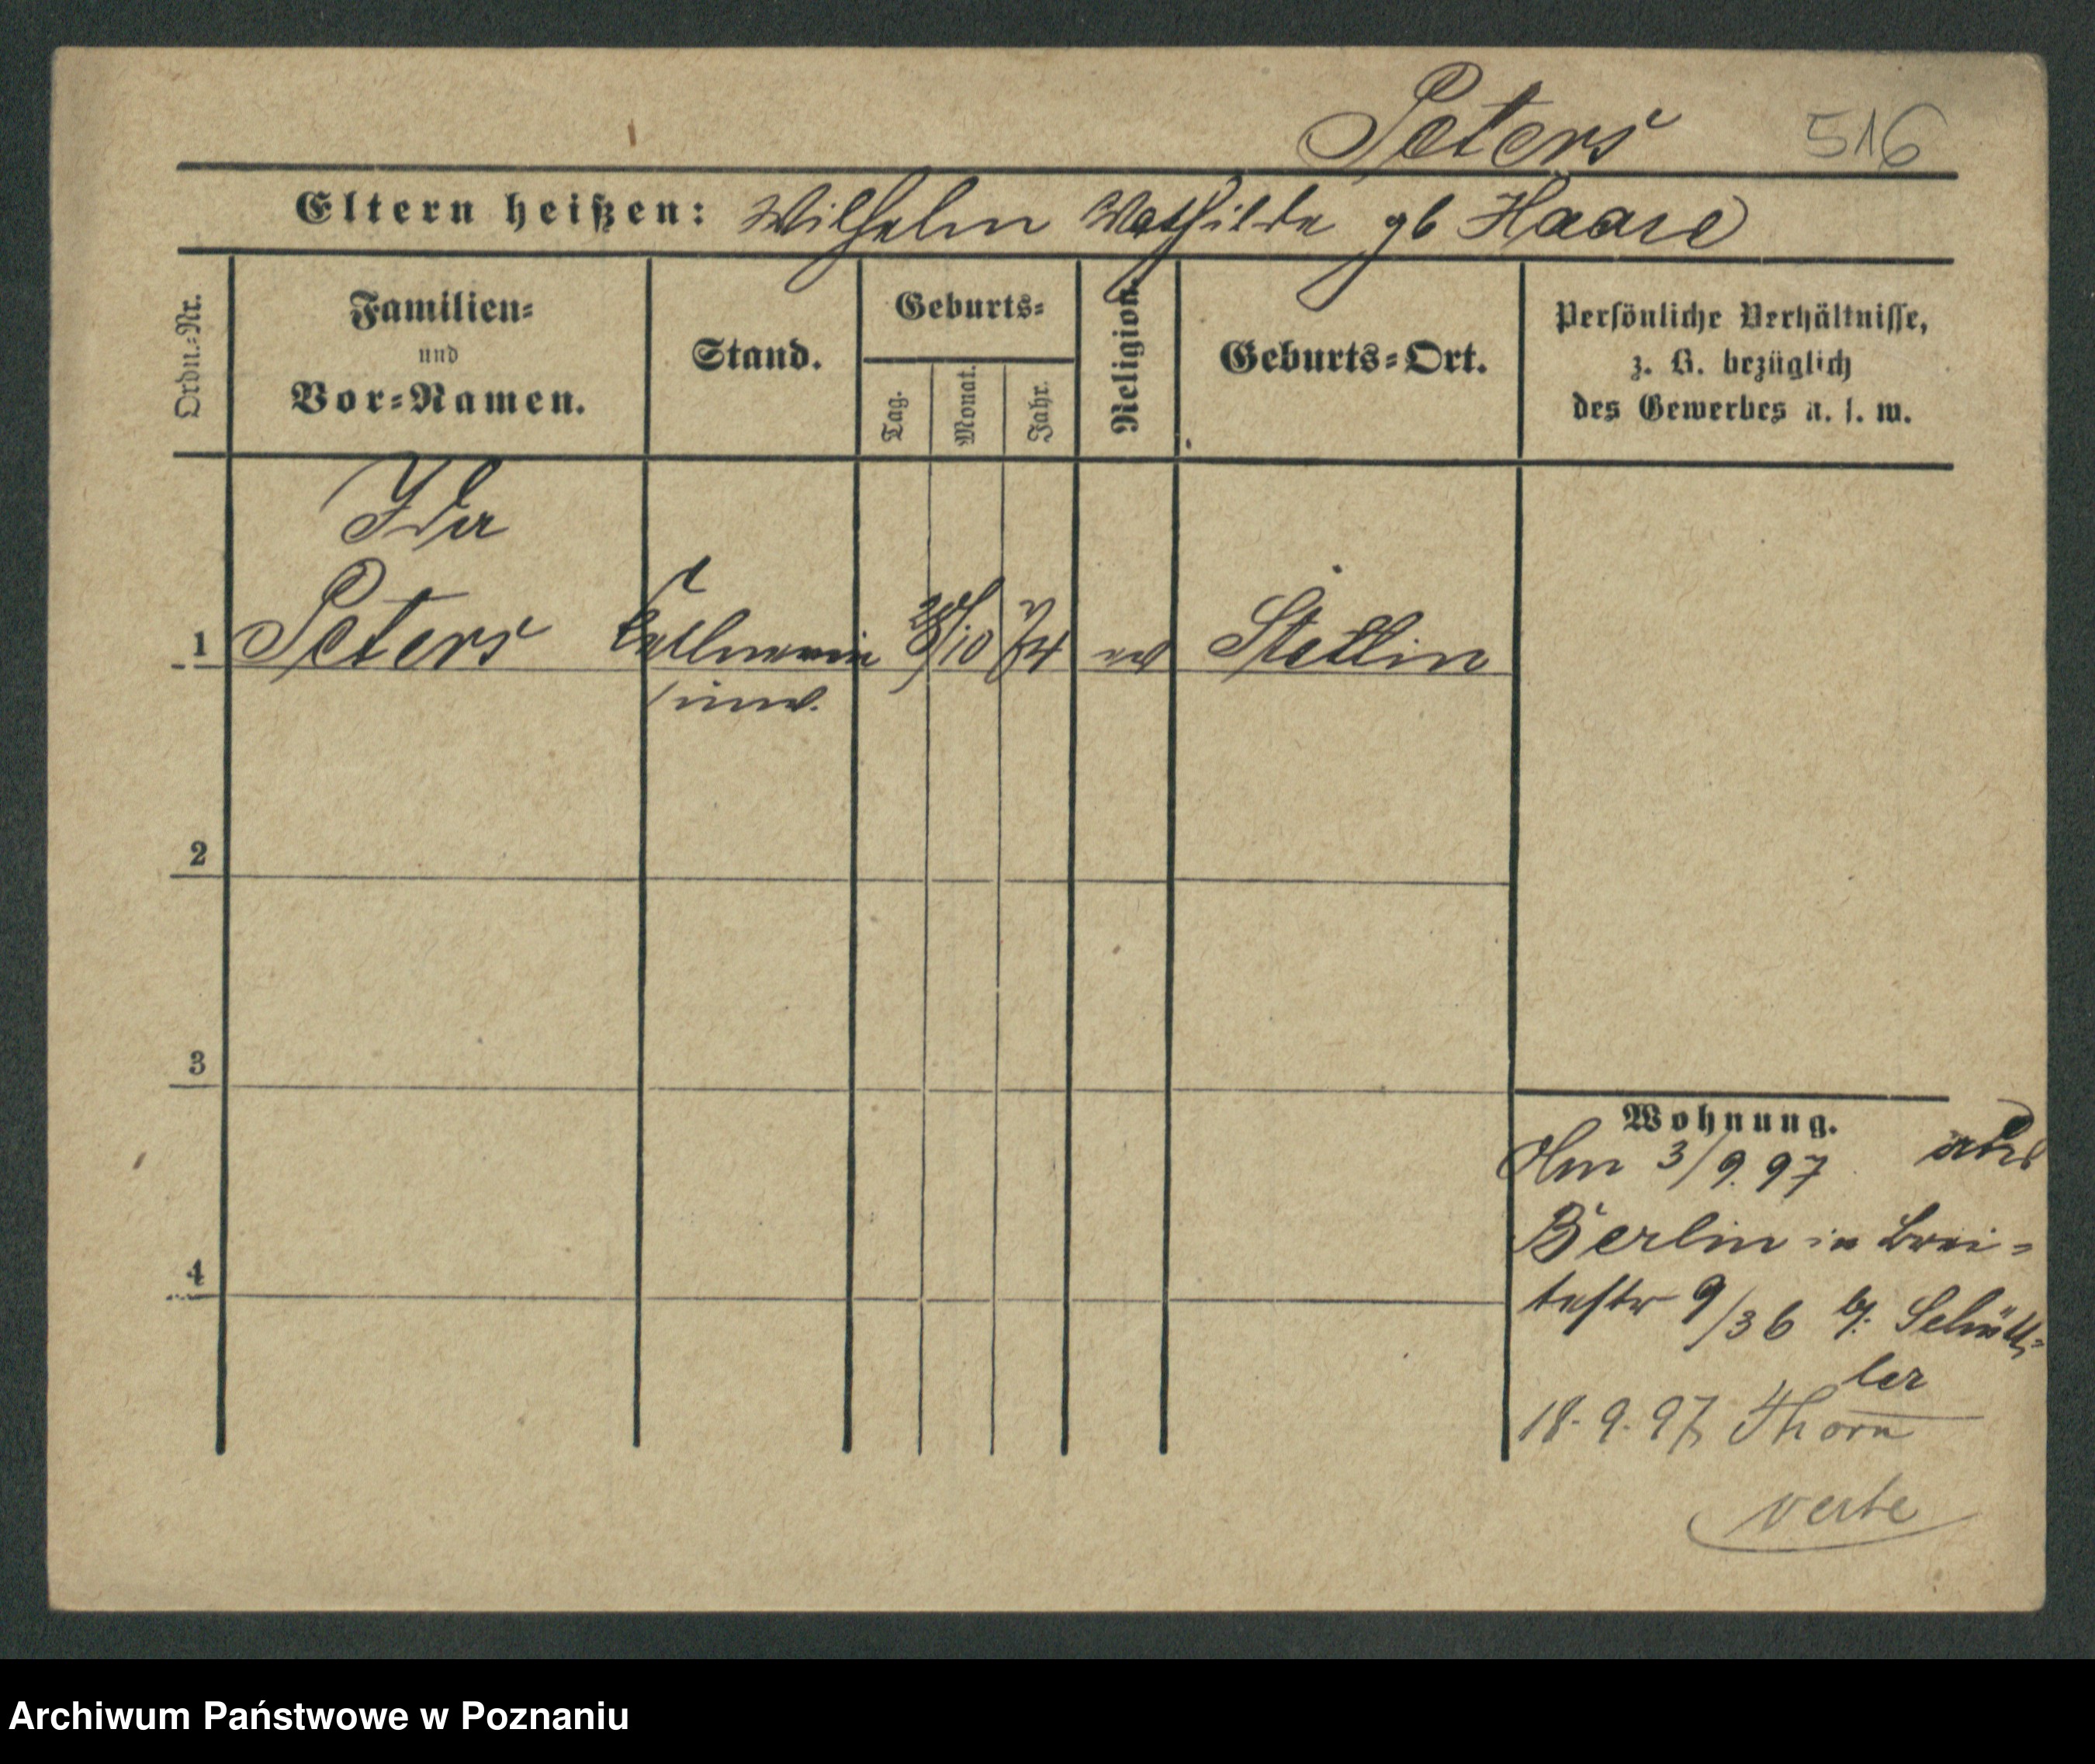 Peters 516
Eltern heißen: Wilhelm Mathilde gb Haase
Ordn.-Nr.
Familien-
und
Vor-Namen.
Stand.
Geburts-
Tag.
Monat.
Jahr.
Religion.
Geburts-Ort.
Persönliche Verhältnisse,
z. B. bezüglich
des Gewerbes u. s. w.
Ida
1 Peters Kellnerin 28/10 74 ev Stettin
unv.
2
3
4
Wohnung.
Am 3/9. 97
Berlin in Brei-
testr 9/36 b: Schütt-
ler
18. 9. 97 Thorn
verte
Archiwum Państwowe w Poznaniu